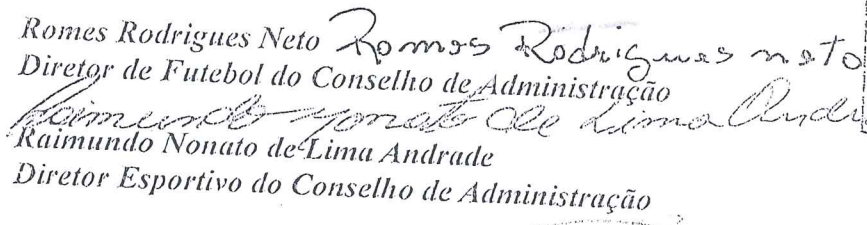 Romes Rodrigues Neto Romes Rodrigues neto
Diretor de Futebol do Conselho de Administração
Raimundo Nonato de Lima Andr
Raimundo Nonato de Lima Andrade
Diretor Esportivo do Conselho de Administração